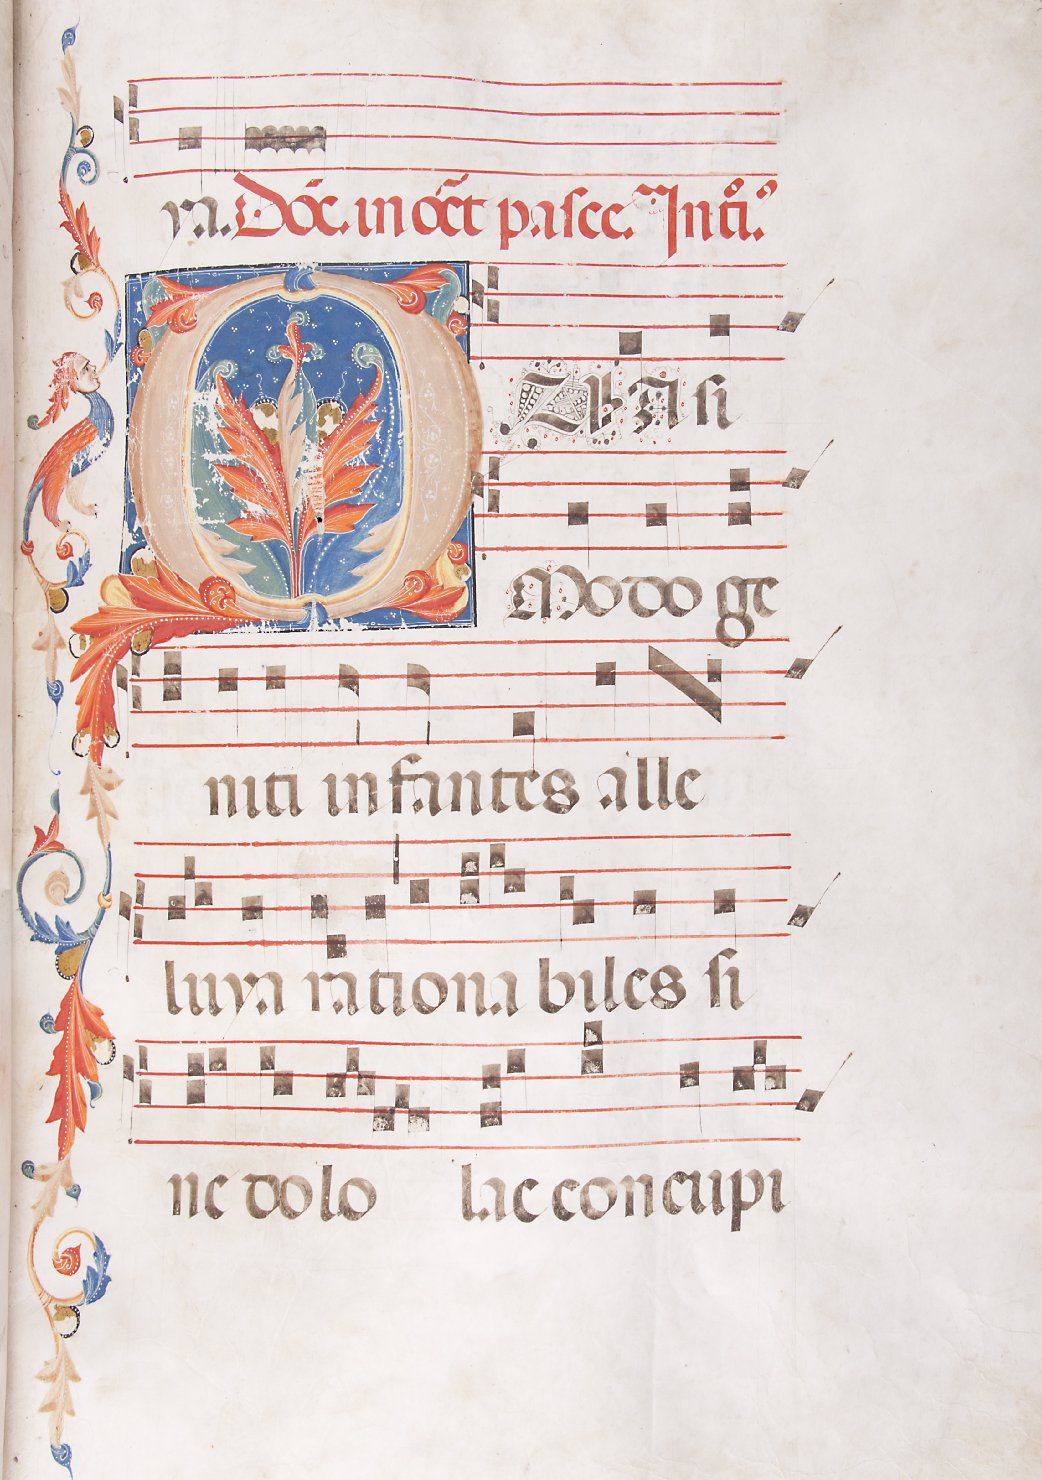 ya. Dōc. in oc̄t pasce. Int̄i.
QUASI
Modo ge
niti infantes alle
luya rationabiles si
ne dolo lac concupi